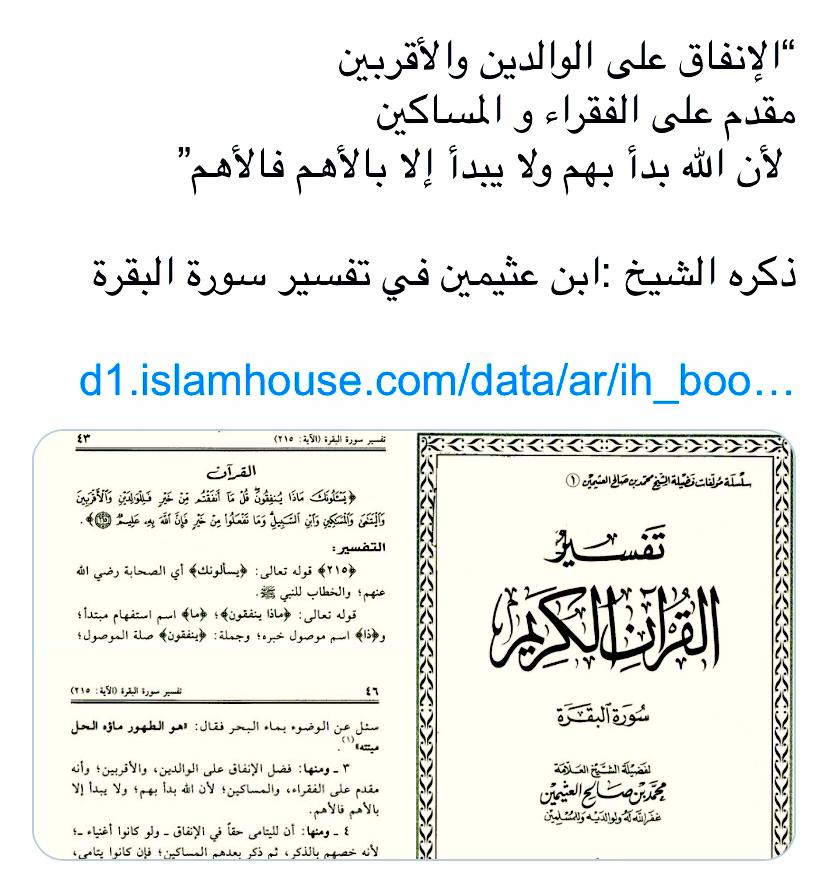 “الإنفاق على الوالدين والأقربين
مقدم على الفقراء و المساكين
لأن الله بدأ بهم ولا يبدأ إلا بالأهم فالأهم”
ذكره الشيخ :ابن عثيمين في تفسير سورة البقرة
d1.islamhouse.com/data/ar/ih_boo…
سلسلة مؤلفات فضيلة الشيخ محمد بن صالح العثيمين (١)
تفسير
القرآن الكريم
سورة البقرة
لفضيلة الشيخ العلامة
محمد بن صالح العثيمين
غفر الله له ولوالديه وللمسلمين
تفسير سورة البقرة (الآية: ٢١٥) ٤٣
القرآن
﴿يَسْـَٔلُونَكَ مَاذَا يُنفِقُونَ قُلْ مَا أَنفَقْتُم مِّنْ خَيْرٍ فَلِلْوَٰلِدَيْنِ وَٱلْأَقْرَبِينَ
وَٱلْيَتَٰمَىٰ وَٱلْمَسَٰكِينِ وَٱبْنِ ٱلسَّبِيلِ وَمَا تَفْعَلُوا مِنْ خَيْرٍ فَإِنَّ ٱللَّهَ بِهِۦ عَلِيمٌ (٢١٥)﴾.
التفسير:
﴿٢١٥﴾ قوله تعالى: ﴿يسألونك﴾ أي الصحابة رضي الله
عنهم؛ والخطاب للنبي ﷺ.
قوله تعالى: ﴿ماذا ينفقون﴾؛ ﴿ما﴾ اسم استفهام مبتدأ؛
و﴿ذا﴾ اسم موصول خبره؛ وجملة: ﴿ينفقون﴾ صلة الموصول؛
٤٦ تفسير سورة البقرة (الآية: ٢١٥)
سئل عن الوضوء بماء البحر فقال: «هو الطهور ماؤه الحل
ميتته»(١).
٣ ـ ومنها: فضل الإنفاق على الوالدين، والأقربين؛ وأنه
مقدم على الفقراء، والمساكين؛ لأن الله بدأ بهم؛ ولا يبدأ إلا
بالأهم فالأهم.
٤ ـ ومنها: أن لليتامى حقاً في الإنفاق ـ ولو كانوا أغنياء ـ؛
لأنه خصهم بالذكر، ثم ذكر بعدهم المساكين؛ فإن كانوا يتامى،